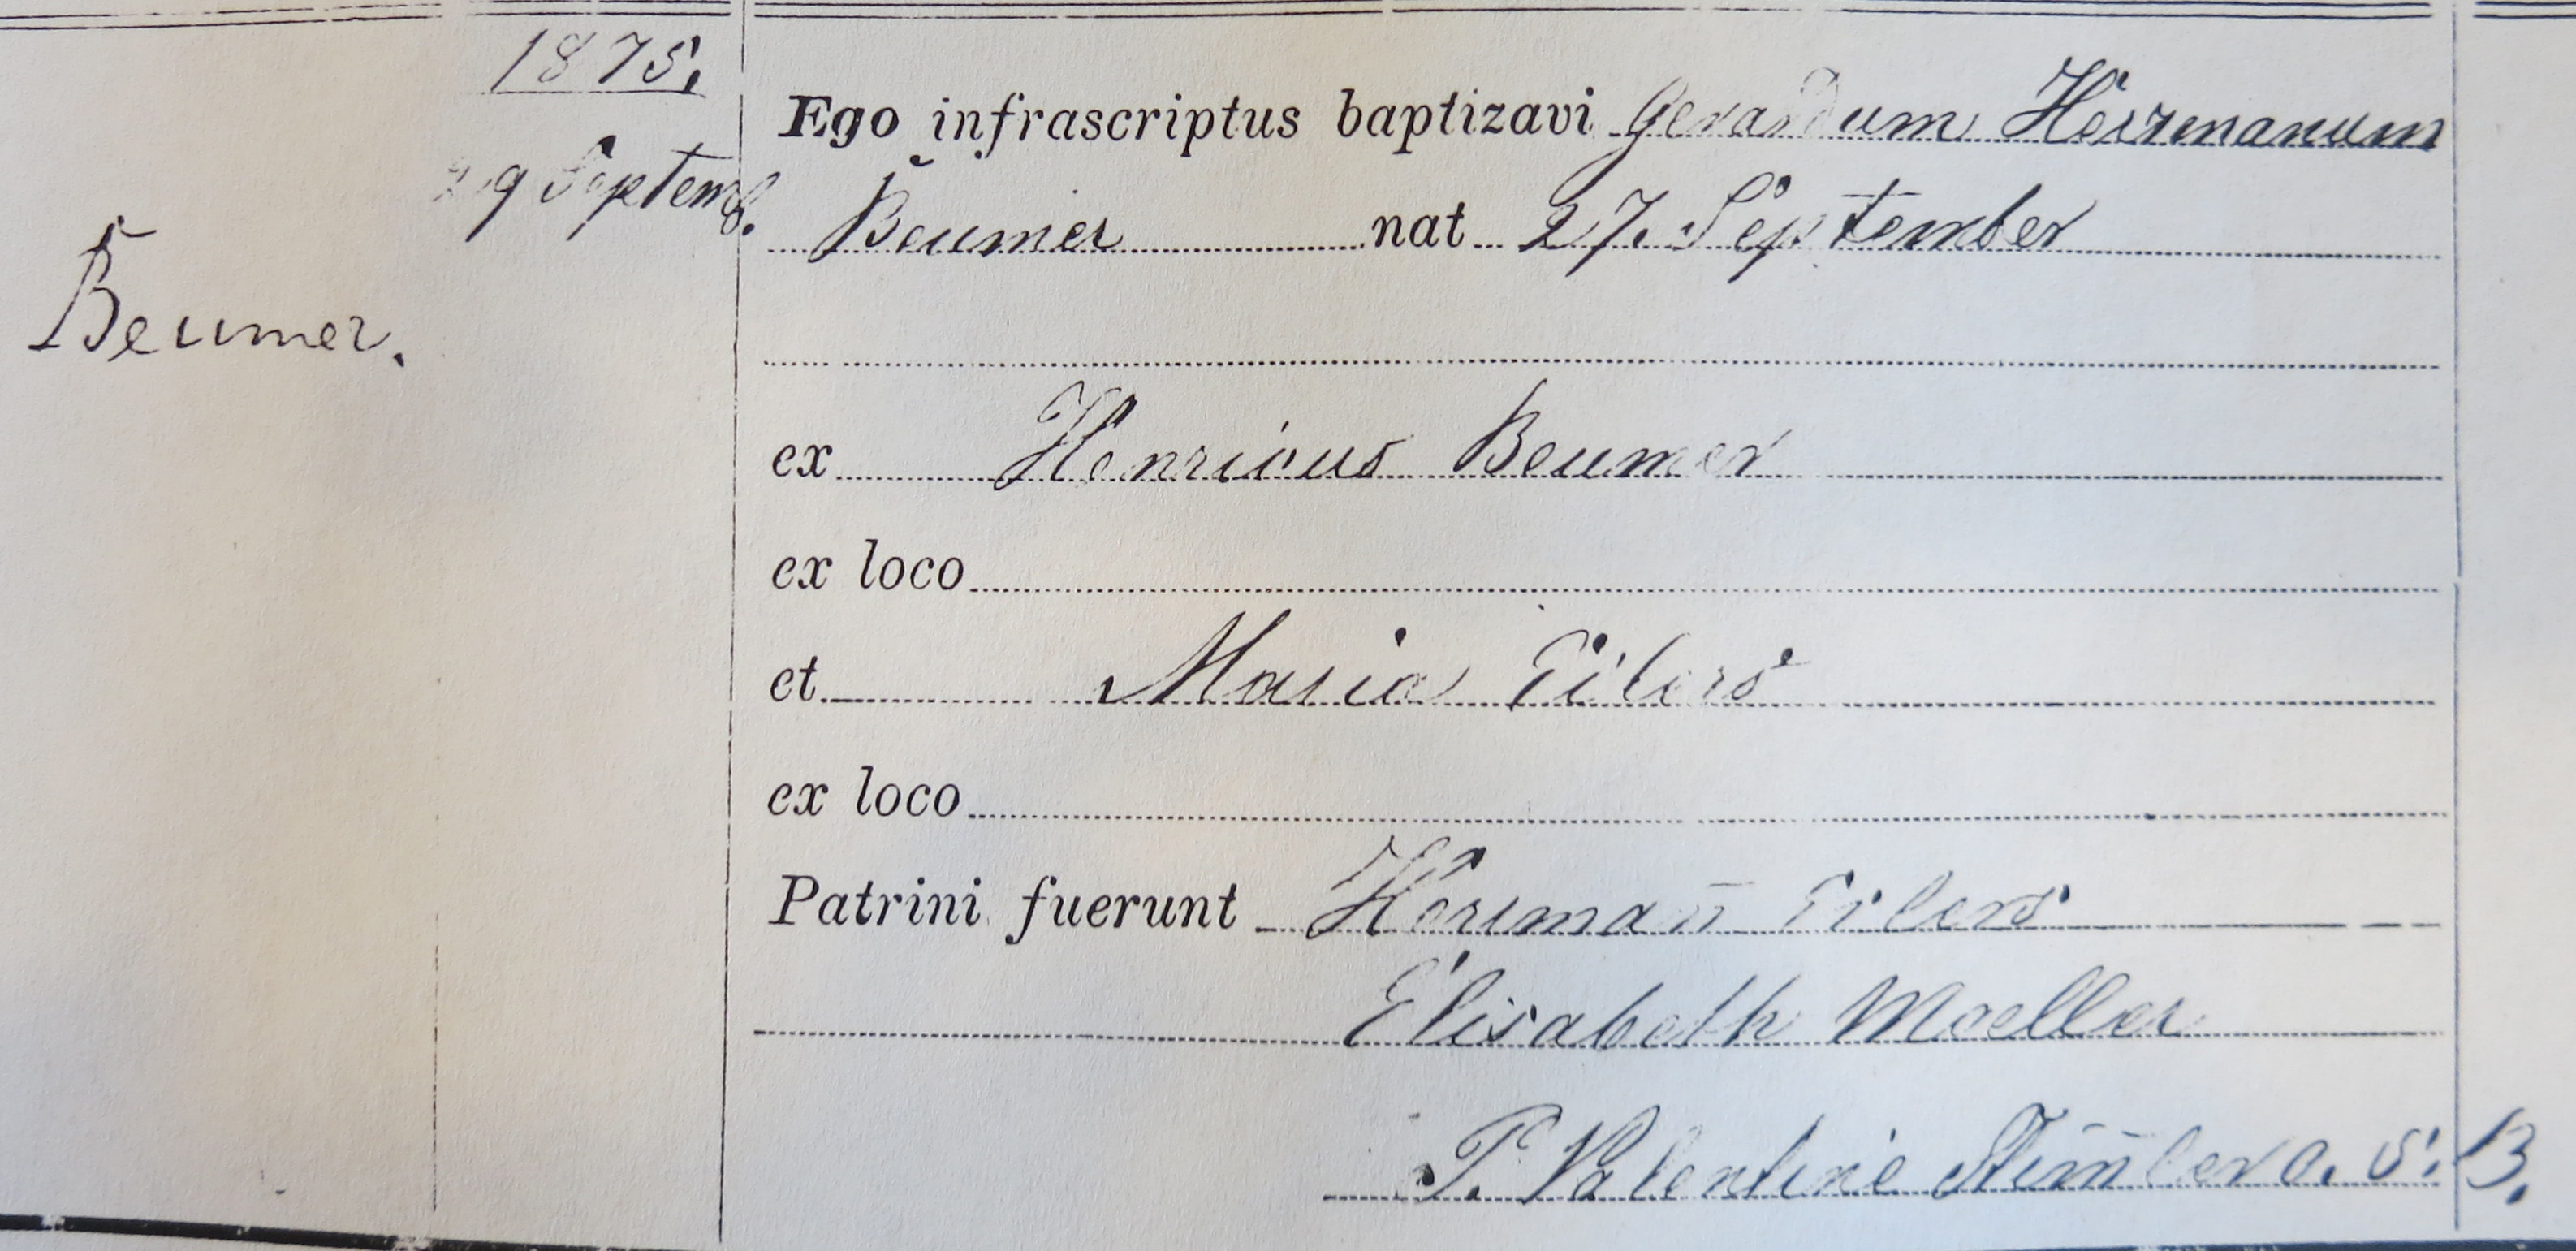 1875.
29 Septemb.
Beumer.
Ego infrascriptus baptizavi Gerardum Herrmanum
Beumer nat 27. September
ex Henricus Beumer
ex loco
et Maria Eilers
ex loco
Patrini fuerunt Hermañ Eilers
Elisabeth Moeller
P. Valentine O. S. B.